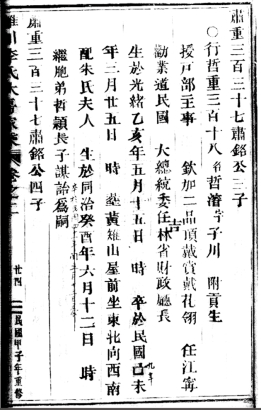 肅重三百三十七肅銘公三子
〇行哲重三百十八名哲濬字子川 附貢生
授戶部主事 欽加二品頂戴賞戴花翎 任江寧
勸業道民國 大總統委任林省財政廳長
吉
生於光緒乙亥年五月十五日 時 卒於民國己未
年三月廿五日 時 塟黃雄山屋前坐東北向西南
配朱氏夫人 生於同治癸酉年六月十二日 時
繼胞弟哲穎長子謀詒為嗣
肅重三百三十七肅銘公四子
卷之二
廿四
民國甲子年重修